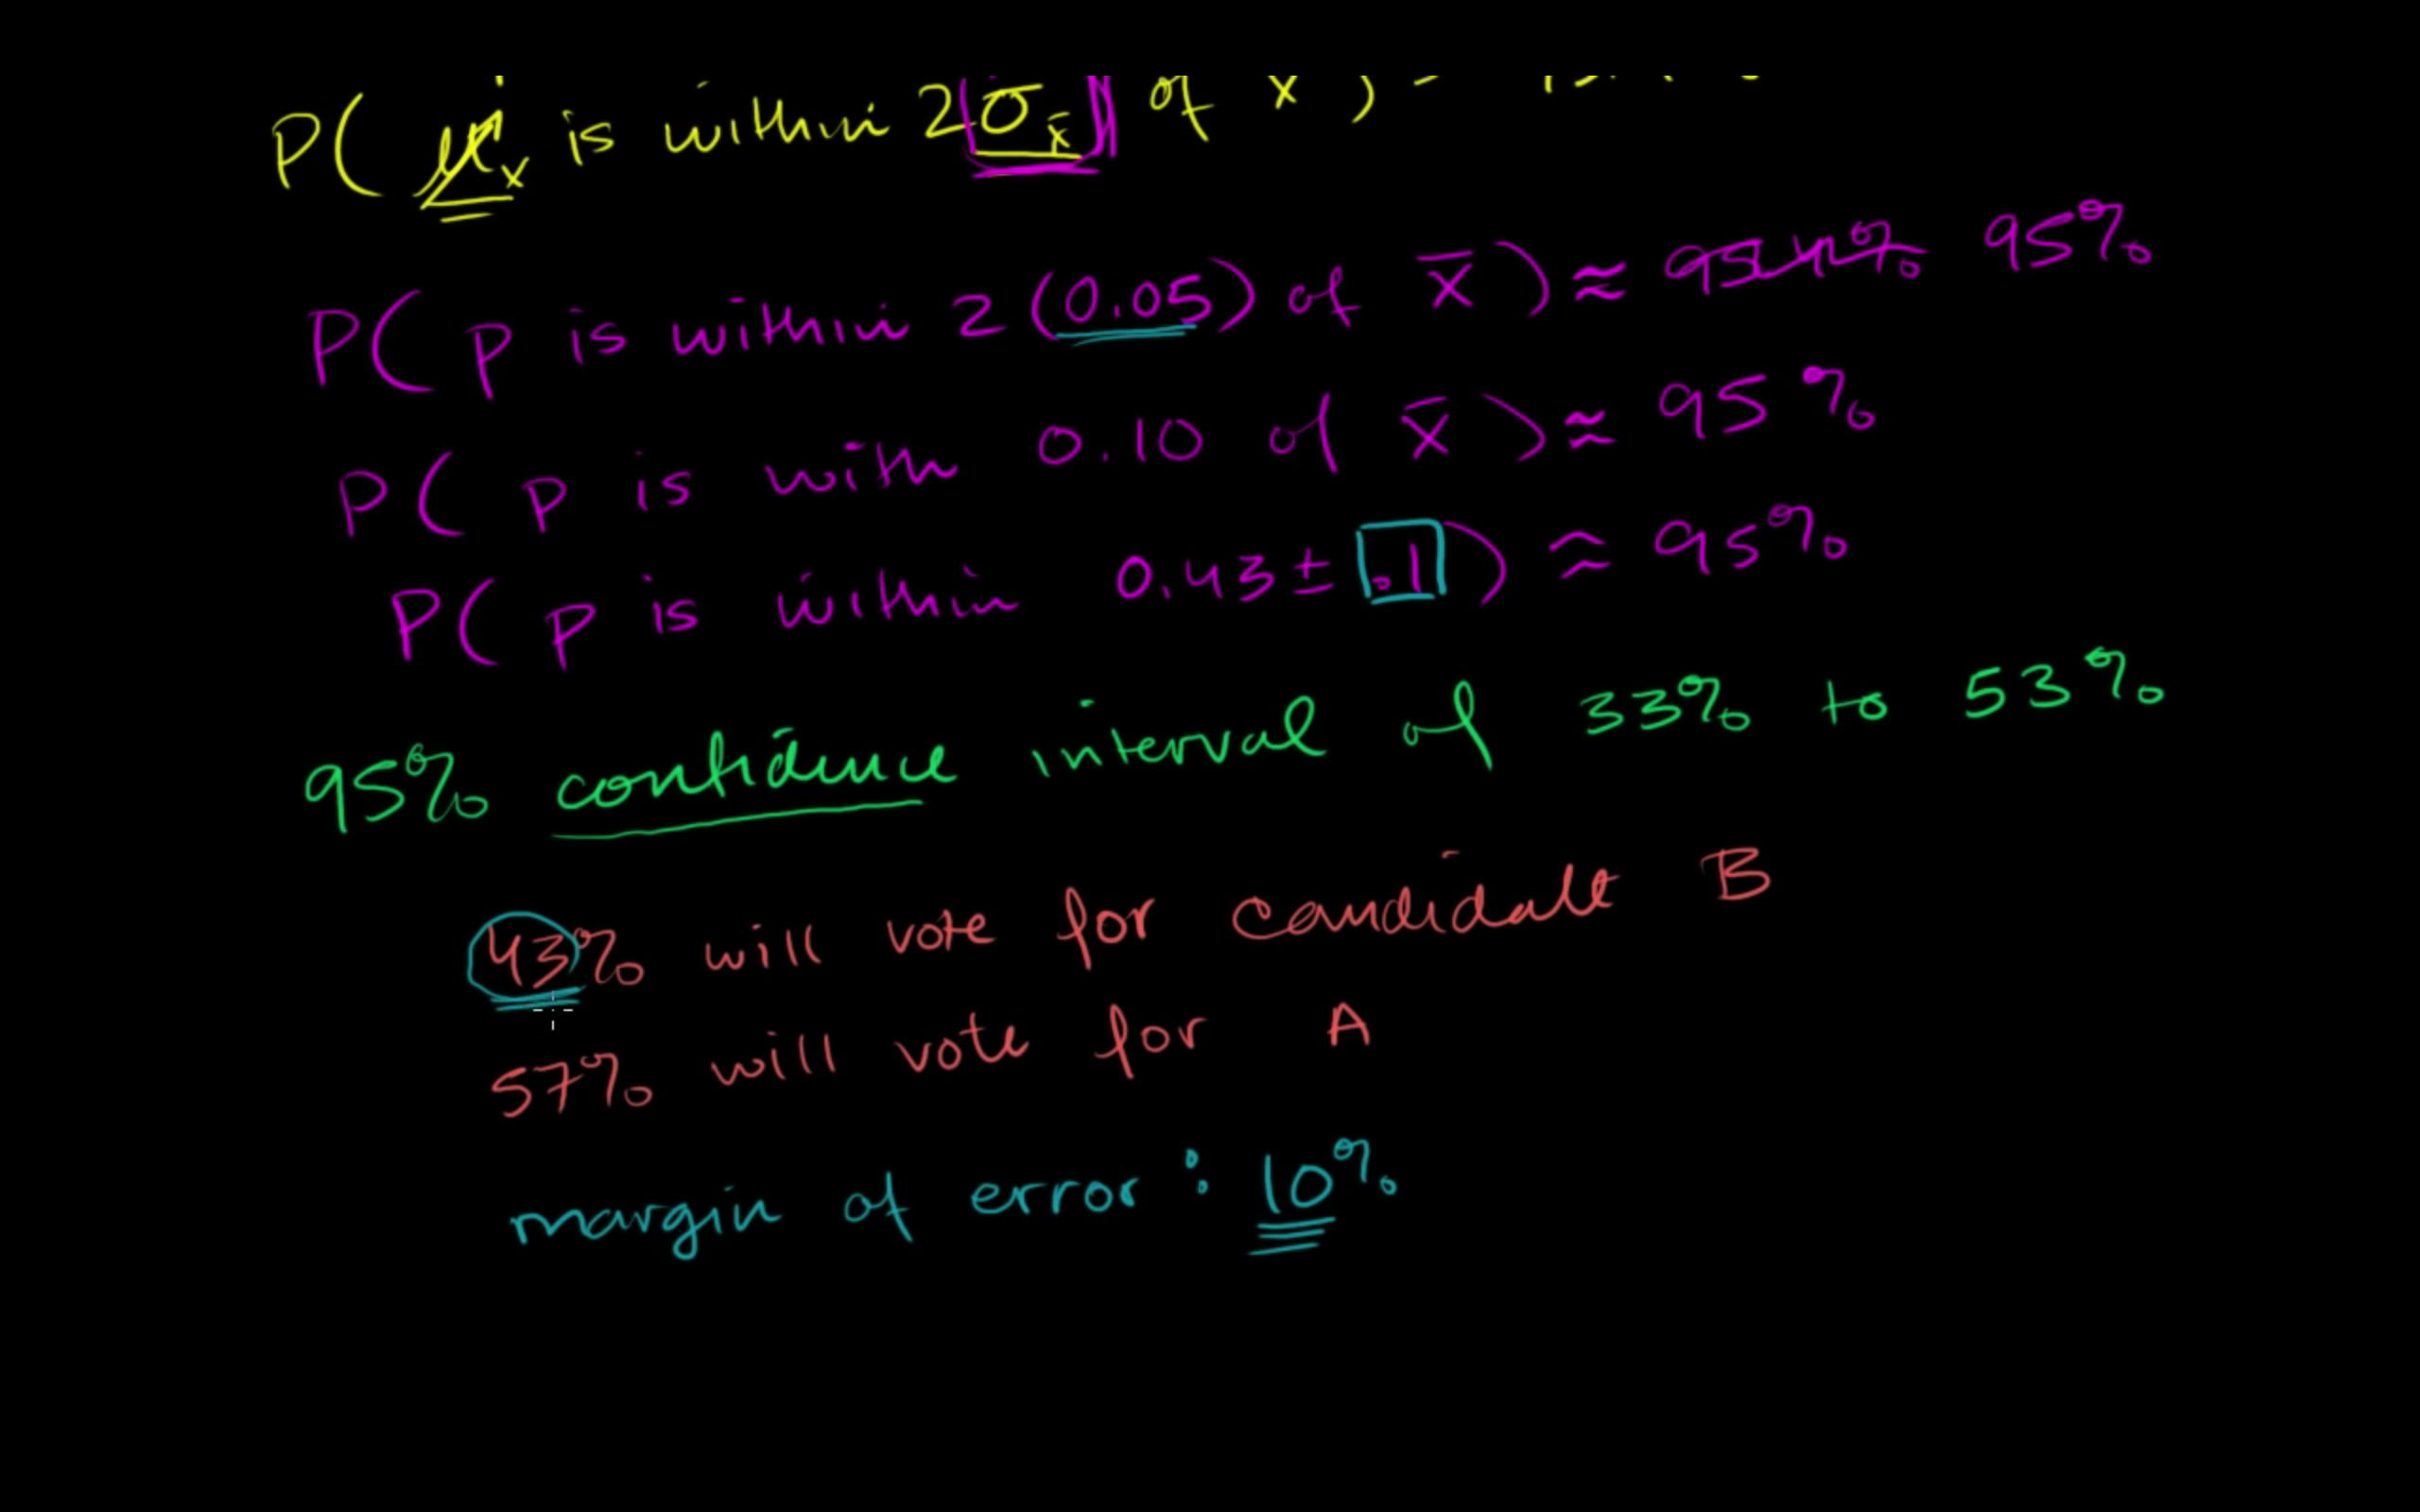 P( μx is within 2(σx̄) of x̄ )
P( p is within 2 (0.05) of x̄ ) ≈ 95.4% 95%
P( p is with 0.10 of x̄ ) ≈ 95%
P( p is within 0.43 ± .1 ) ≈ 95%
95% confidence interval of 33% to 53%
43% will vote for candidate B
57% will vote for A
margin of error : 10%